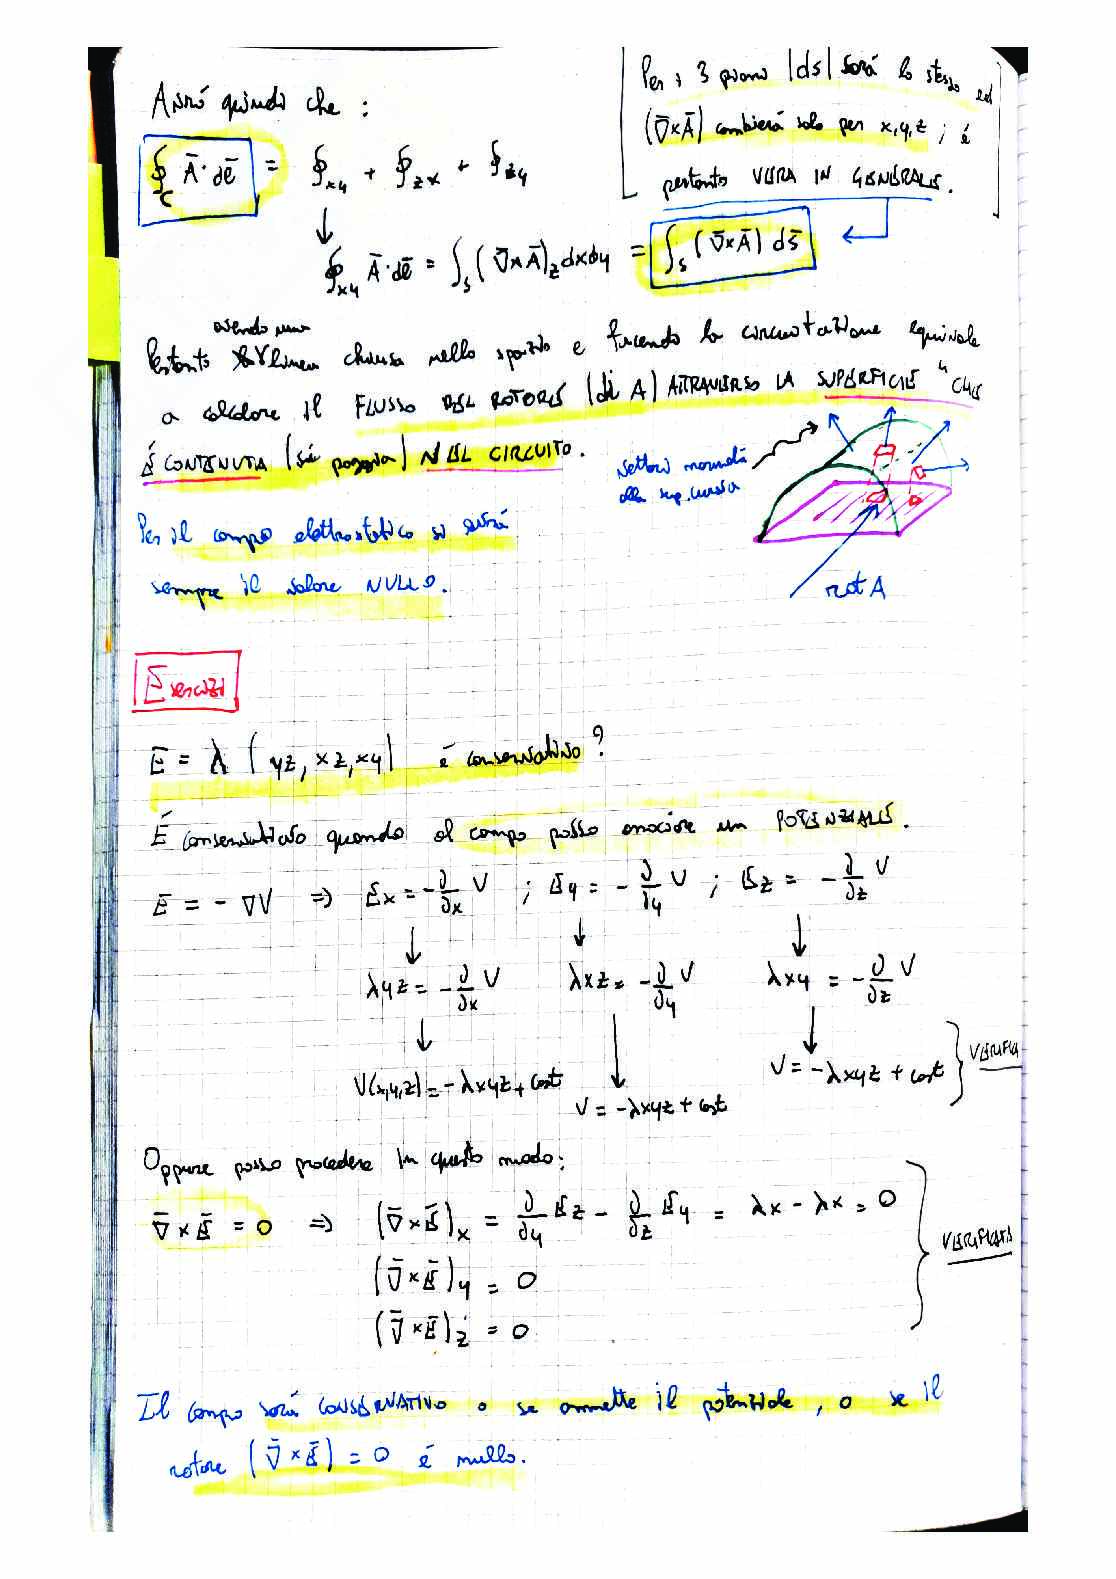 Avrò quindi che :
∮_C Ā·dē = ∮_xy + ∮_zx + ∮_zy
Per i 3 piani |ds| sarà lo stesso ed
(∇̄×Ā) cambierà solo per x,y,z ; è
pertanto VERA IN GENERALE.
↓
∮_xy Ā·dē = ∫_S (∇̄×Ā)_z dxdy = ∫_S (∇̄×Ā) ds̄
avendo una
Pertanto linea chiusa nello spazio e facendo la circuitazione equivale
a calcolare il FLUSSO DEL ROTORE (di A) ATTRAVERSO LA SUPERFICIE "CHE
È CONTENUTA (si poggia) NEL CIRCUITO.
vettori normali
alla sup. curva
rot A
Per il campo elettrostatico si avrà
sempre il valore NULLO.
Esercizi
Ē = λ (yz, xz, xy) è conservativo?
È conservativo quando al campo posso associare un POTENZIALE.
Ē = - ∇V ⇒ Ex = -∂/∂x V ; Ey = -∂/∂y V ; Ez = -∂/∂z V
↓ ↓ ↓
λyz = -∂/∂x V λxz = -∂/∂y V λxy = -∂/∂z V
↓ ↓ ↓
V(x,y,z) = -λxyz + cost V = -λxyz + cost V = -λxyz + cost } VERIFICA
Oppure posso procedere in questo modo:
∇̄×Ē = 0 ⇒ (∇̄×Ē)_x = ∂/∂y Ez - ∂/∂z Ey = λx - λx = 0
(∇̄×Ē)_y = 0
(∇̄×Ē)_z = 0
} VERIFICATA
Il campo sarà CONSERVATIVO o se ammette il potenziale, o se il
rotore (∇̄×Ē) = 0 è nullo.